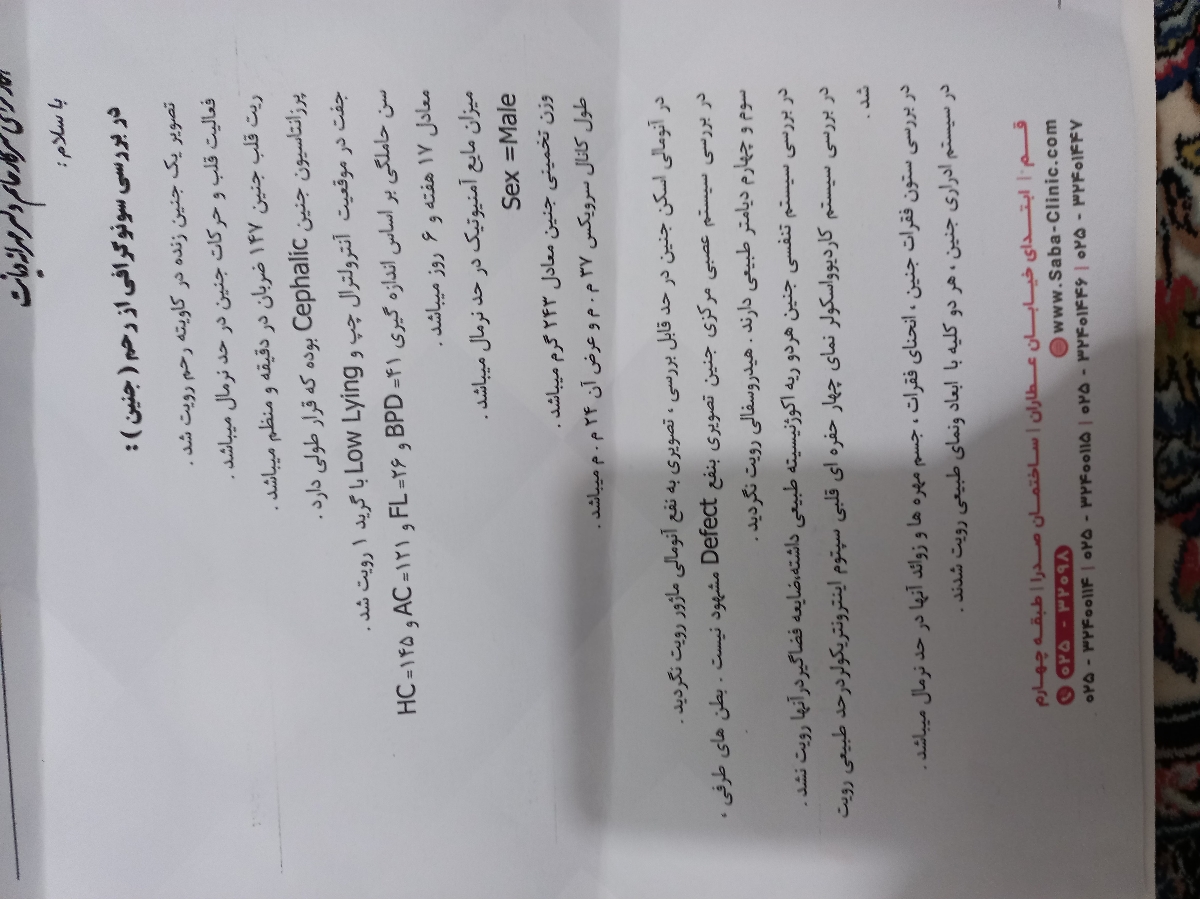 با سلام :
در بررسی سونوگرافی از رحم ( جنین ) :
تصویر یک جنین زنده در کاویته رحم رویت شد .
فعالیت قلب و حرکات جنین در حد نرمال میباشد .
ریت قلب جنین ۱۴۷ ضربان در دقیقه و منظم میباشد .
پرزانتاسیون جنین Cephalic بوده که قرار طولی دارد .
جفت در موقعیت آنترولترال چپ و Low Lying با گرید ۱ رویت شد .
سن حاملگی بر اساس اندازه گیری BPD =۴۱ و FL =۲۶ و AC =۱۲۱ و HC =۱۴۵
معادل ۱۷ هفته و ۶ روز میباشد .
میزان مایع آمنیوتیک در حد نرمال میباشد .
Sex =Male
وزن تخمینی جنین معادل ۲۴۳ گرم میباشد .
طول کانال سرویکس ۳۷ م . م و عرض آن ۲۴ م . م میباشد .
در آنومالی اسکن جنین در حد قابل بررسی ، تصویری به نفع آنومالی ماژور رویت نگردید .
در بررسی سیستم عصبی مرکزی جنین تصویری بنفع Defect مشهود نیست . بطن های طرفی ،
سوم و چهارم دیامتر طبیعی دارند . هیدروسفالی رویت نگردید .
در بررسی سیستم تنفسی جنین هردو ریه اکوژنیسیته طبیعی داشته،ضایعه فضاگیر درآنها رویت نشد .
در بررسی سیستم کاردیوواسکولر نمای چهار حفره ای قلبی سپتوم اینترونتریکولر درحد طبیعی رویت
شد .
در بررسی ستون فقرات جنین ، انحنای فقرات ، جسم مهره ها و زوائد آنها در حد نرمال میباشد .
در سیستم ادراری جنین ، هر دو کلیه با ابعاد ونمای طبیعی رویت شدند .
قم | ابتدای خیابان عطاران | ساختمان صدرا | طبقه چهارم
www.Saba-Clinic.com ۰۲۵ - ۳۲۰۹۸
۰۲۵ - ۳۲۴۰۰۱۱۴ | ۰۲۵ - ۳۲۴۰۰۱۱۵ | ۰۲۵ - ۳۲۴۰۱۴۴۶ | ۰۲۵ - ۳۲۴۰۱۴۴۷